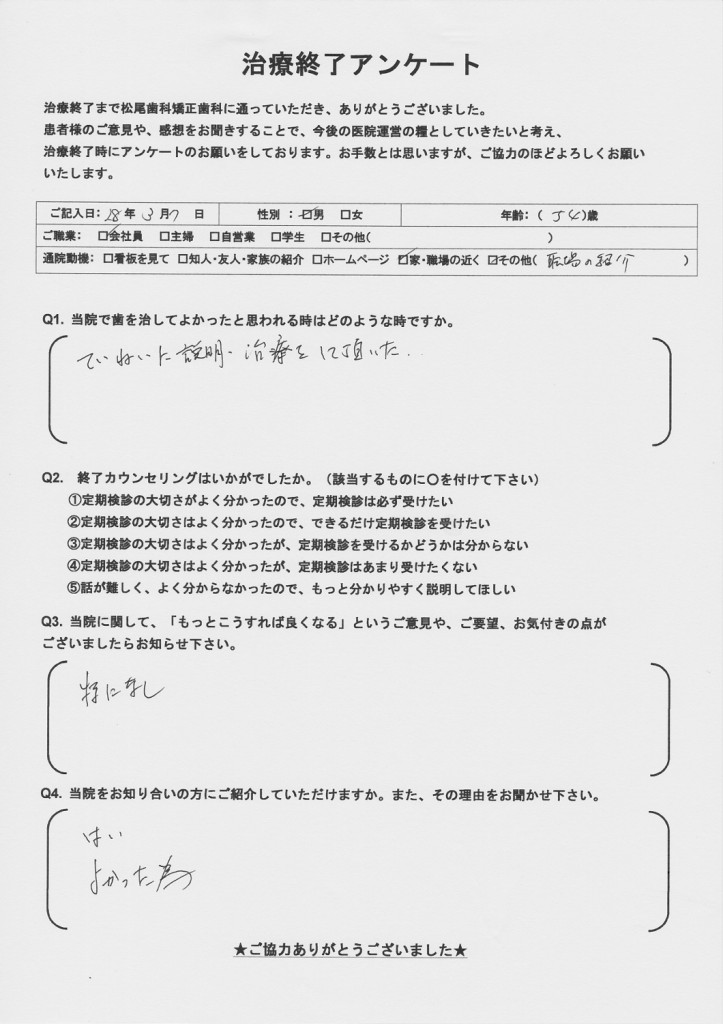 治療終了アンケート
治療終了まで松尾歯科矯正歯科に通っていただき、ありがとうございました。
患者様のご意見や、感想をお聞きすることで、今後の医院運営の糧としていきたいと考え、
治療終了時にアンケートのお願いをしております。お手数とは思いますが、ご協力のほどよろしくお願い
いたします。
ご記入日: 28 年 3 月 7 日 性別 : ☑男 □女 年齢: ( 54 )歳
ご職業: ☑会社員 □主婦 □自営業 □学生 □その他( )
通院動機: □看板を見て □知人・友人・家族の紹介 □ホームページ ☑家・職場の近く ☑その他( 職場の紹介 )
Q1. 当院で歯を治してよかったと思われる時はどのような時ですか。
ていねいな説明・治療をして頂いた..
Q2. 終了カウンセリングはいかがでしたか。（該当するものに〇を付けて下さい）
①定期検診の大切さがよく分かったので、定期検診は必ず受けたい
②定期検診の大切さはよく分かったので、できるだけ定期検診を受けたい
③定期検診の大切さはよく分かったが、定期検診を受けるかどうかは分からない
④定期検診の大切さはよく分かったが、定期検診はあまり受けたくない
⑤話が難しく、よく分からなかったので、もっと分かりやすく説明してほしい
Q3. 当院に関して、「もっとこうすれば良くなる」というご意見や、ご要望、お気付きの点が
ございましたらお知らせ下さい。
特になし
Q4. 当院をお知り合いの方にご紹介していただけますか。また、その理由をお聞かせ下さい。
はい
よかった為
★ご協力ありがとうございました★